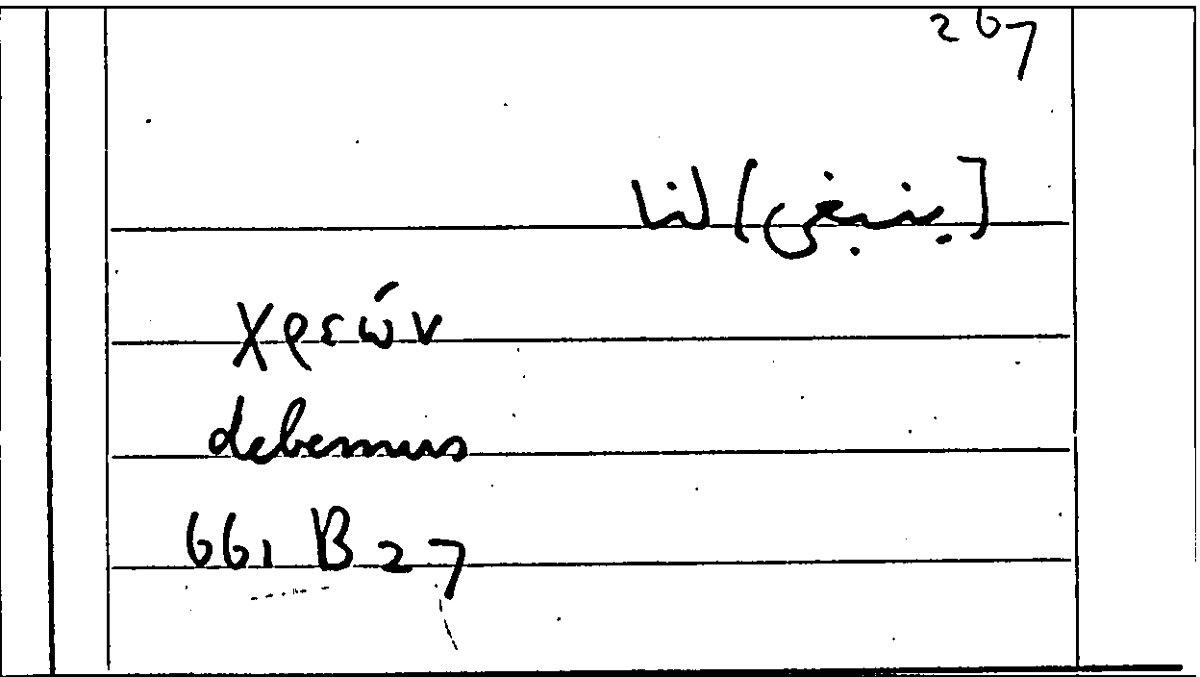 267
[ينبغى) لنا
χρεών
debemus
661 B 27